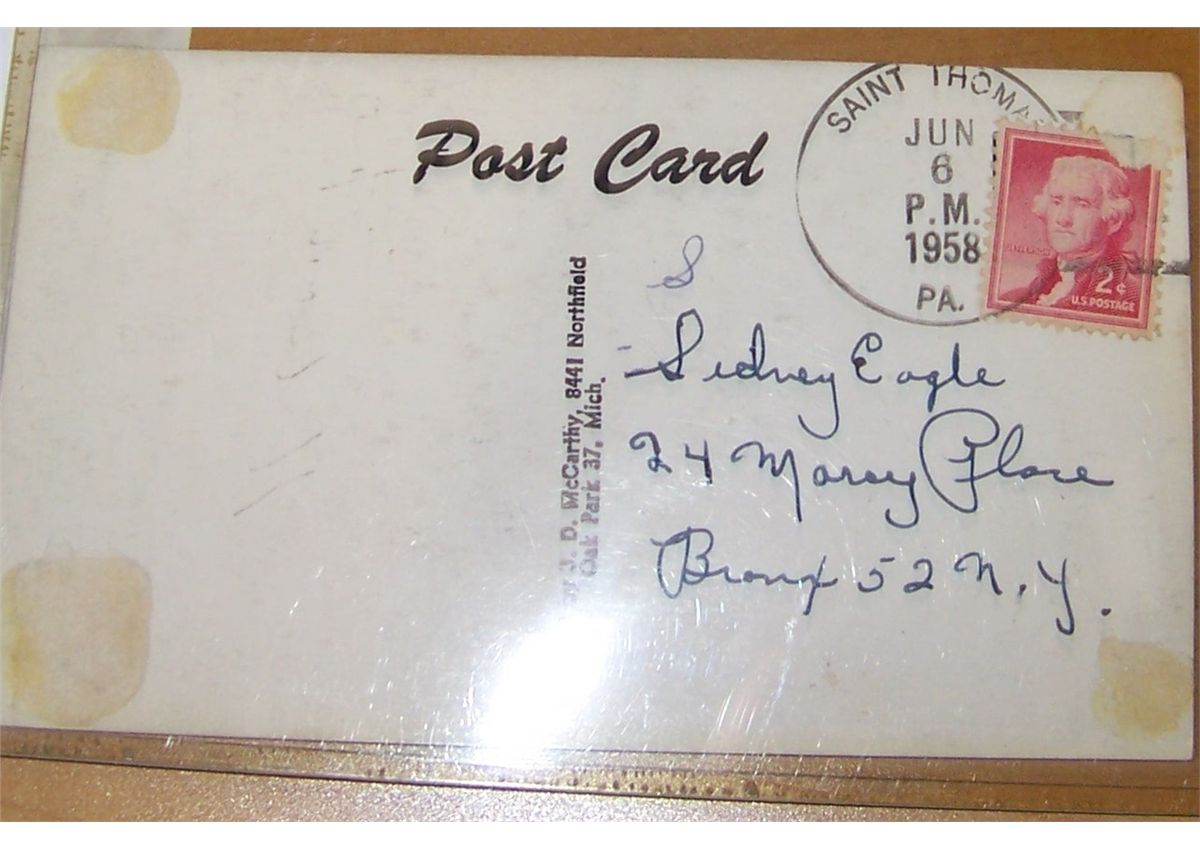 Post Card
SAINT THOMAS
JUN
6
P.M.
1958
PA.
JEFFERSON
2¢
U.S. POSTAGE
S
Sidney Eagle
24 Marcy Place
Bronx 52 N.Y.
by J. D. McCarthy, 8441 Northfield
Oak Park 37, Mich.